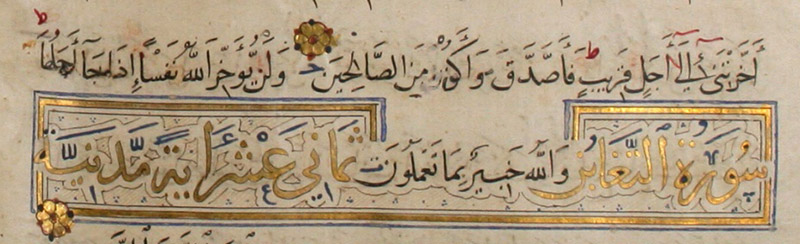 أَخَّرْتَنِي إِلَى أَجَلٍ قَرِيبٍ فَأَصَّدَّقَ وَأَكُنْ مِنَ الصَّالِحِينَ وَلَنْ يُؤَخِّرَ اللَّهُ نَفْسًا إِذَا جَاءَ أَجَلُهَا
سُورَةُ التَّغَابُنِ وَاللَّهُ خَبِيرٌ بِمَا تَعْمَلُونَ ثَمَانِيَ عَشْرَ آيَةً مَدَنِيَّة